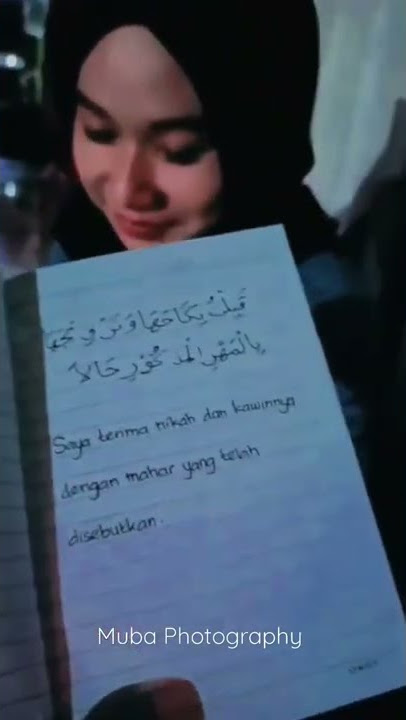 قَبِلْتُ نِكَاحَهَا وَتَزْوِيْجَهَا
بِالْمَهْرِ الْمَذْكُوْرِ حَالاً
Saya terima nikah dan kawinnya
dengan mahar yang telah
disebutkan.
Muba Photography